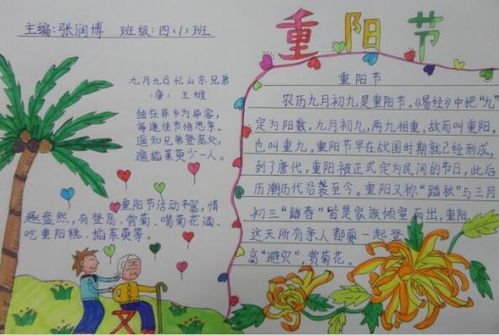 主编:张润博 班级:四(1)班
重阳节
九月九日忆山东兄弟
(唐) 王维
独在异乡为异客,
每逢佳节倍思亲。
遥知兄弟登高处,
遍插茱萸少一人。
重阳节活动丰富,情
趣盎然,有登高、赏菊、喝菊花酒、
吃重阳糕、插茱萸等。
重阳节
农历九月初九是重阳节,《易经》中把“九”
定为阳数,九月初九,两九相重,故而叫重阳,
也叫重九,重阳节早在战国时期就已经形成,
到了唐代,重阳被正式定为民间的节日,此后
历朝历代沿袭至今。重阳又称“踏秋”与三月
初三“踏春”皆是家族倾室而出,重阳
这天所有亲人都要一起登
高“避灾”赏菊花。